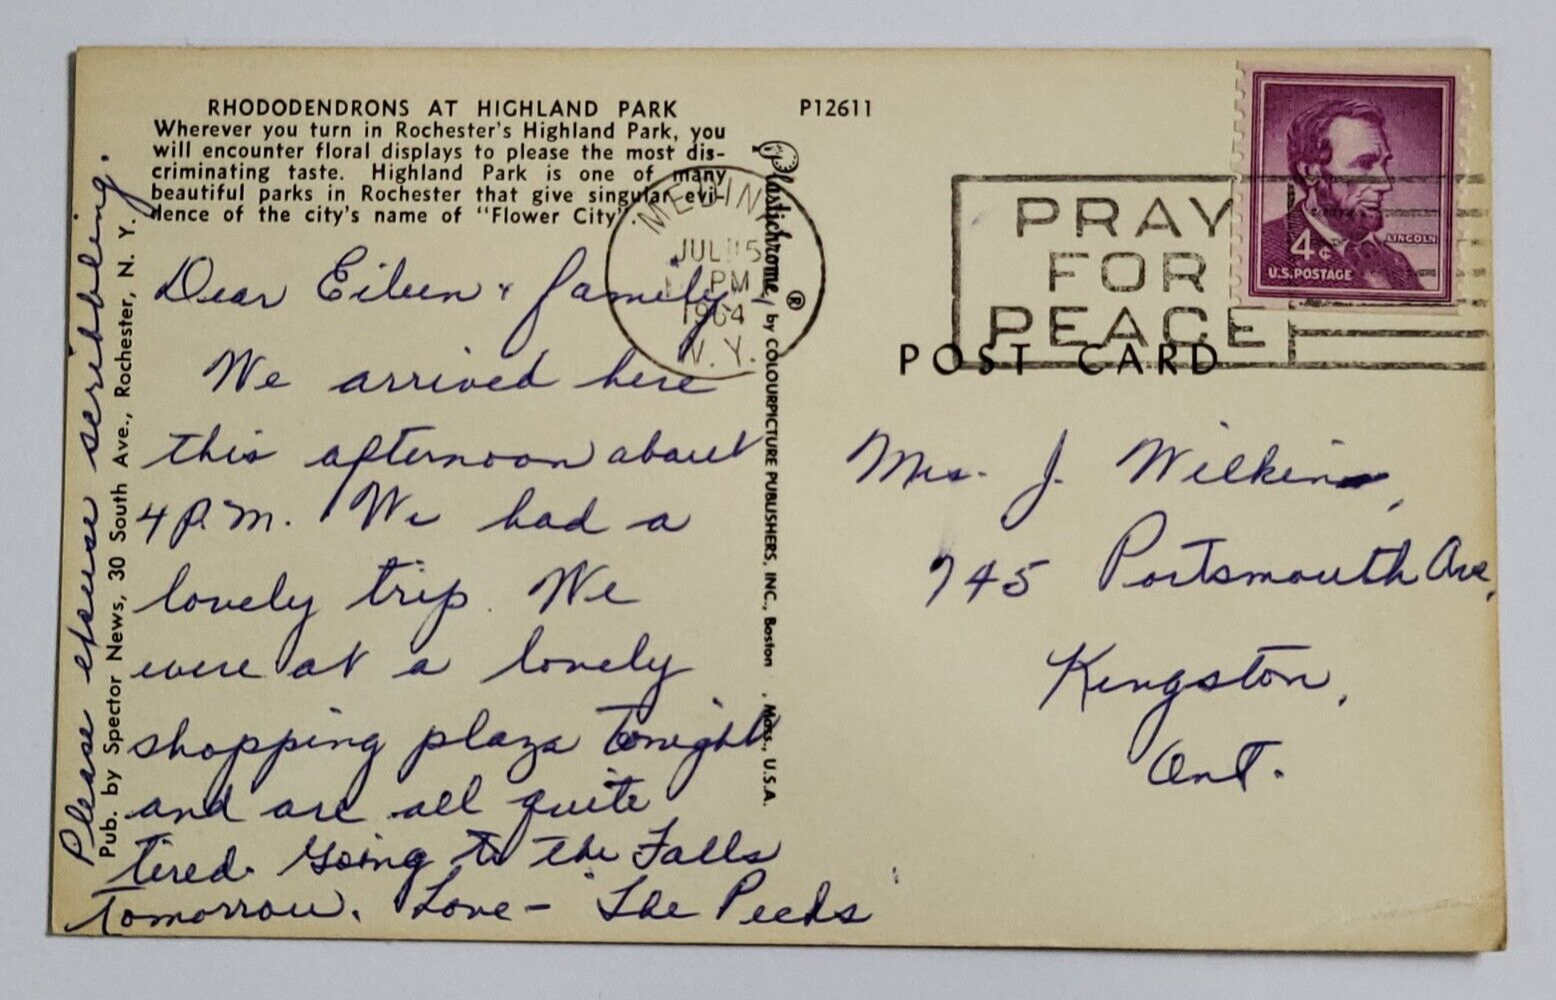 RHODODENDRONS AT HIGHLAND PARK
Wherever you turn in Rochester's Highland Park, you
will encounter floral displays to please the most dis-
criminating taste. Highland Park is one of many
beautiful parks in Rochester that give singular evi-
dence of the city's name of "Flower City".
P12611
MEDINA
JUL 15
PM
1964
N. Y.
PRAY
FOR
PEACE
4¢
LINCOLN
U.S. POSTAGE
POST CARD
Dear Eileen & family,
We arrived here
this afternoon about
4 P.M. We had a
lovely trip. We
were at a lovely
shopping plaza tonight
and are all quite
tired. Going to the Falls
tomorrow. Love - The Pecks
Please excuse scribbling.
Pub. by Spector News, 30 South Ave., Rochester, N. Y.
Plastichrome® by COLOURPICTURE PUBLISHERS, INC., Boston, Mass., U.S.A.
Mrs. J. Wilkins,
745 Portsmouth Ave,
Kingston,
Ont.